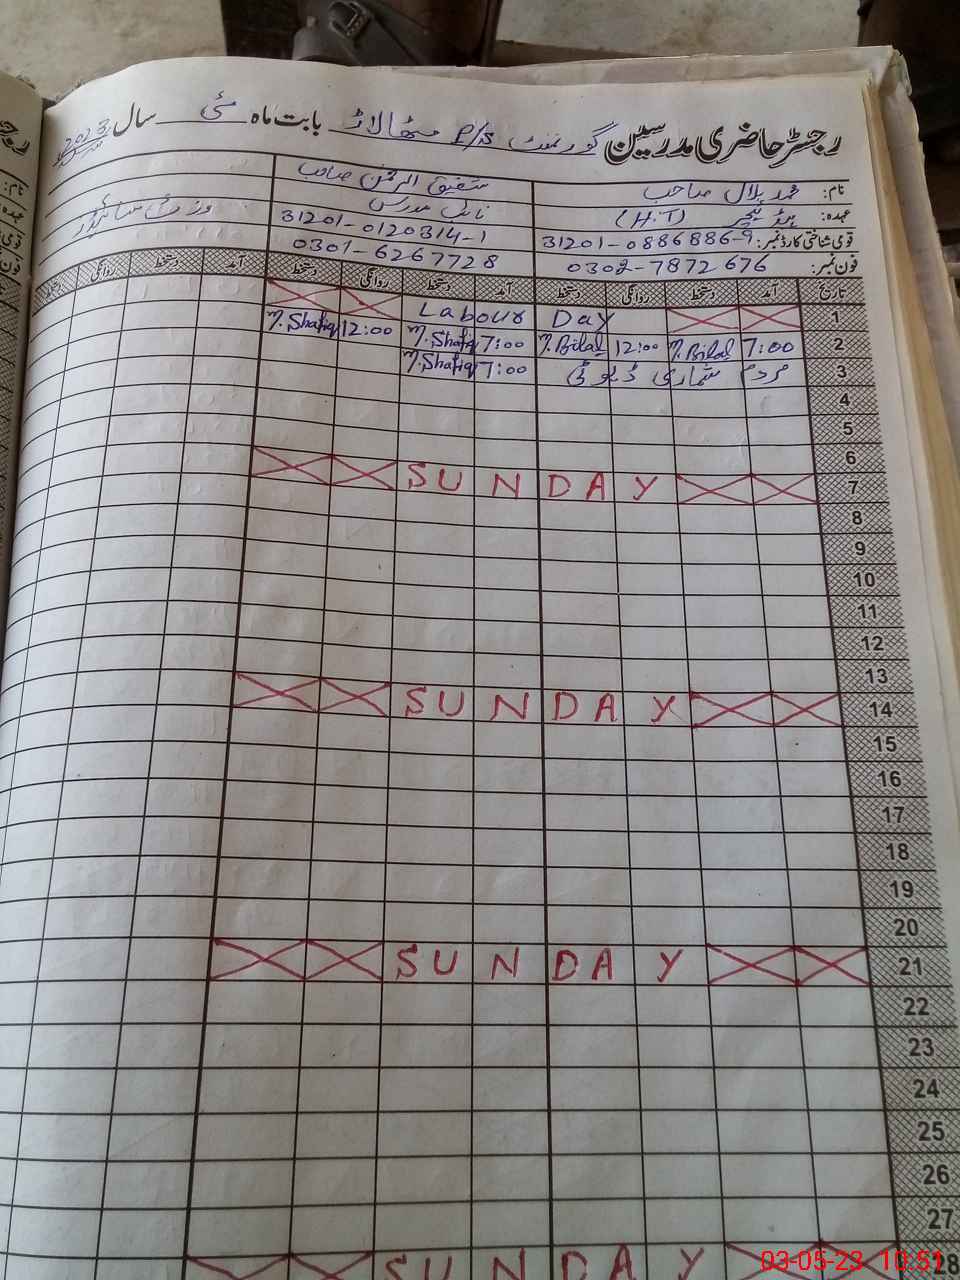 رجسٹر حاضری مدرسین گورنمنٹ P/S مٹھالاڑ بابت ماہ مئی سال 2023
نام: محمد بلال صاحب شفیق الرحمٰن صاحب
عہدہ: ہیڈ ٹیچر (H.T) نائب مدرس
قومی شناختی کارڈ نمبر: 31201-0886886-9 31201-0120314-1
فون نمبر: 0302-7872676 0301-6267728
تاریخ آمد دستخط روانگی دستخط آمد دستخط روانگی دستخط آمد دستخط روانگی دستخط
1 Labour Day
2 7:00 M.Bilal 12:00 M.Bilal 7:00 M.Shafiq 12:00 M.Shafiq
3 مردم شماری ڈیوٹی 7:00 M.Shafiq
4
5
6
7 SUNDAY
8
9
10
11
12
13
14 SUNDAY
15
16
17
18
19
20
21 SUNDAY
22
23
24
25
26
27
28 SUNDAY
03-05-23 10:51